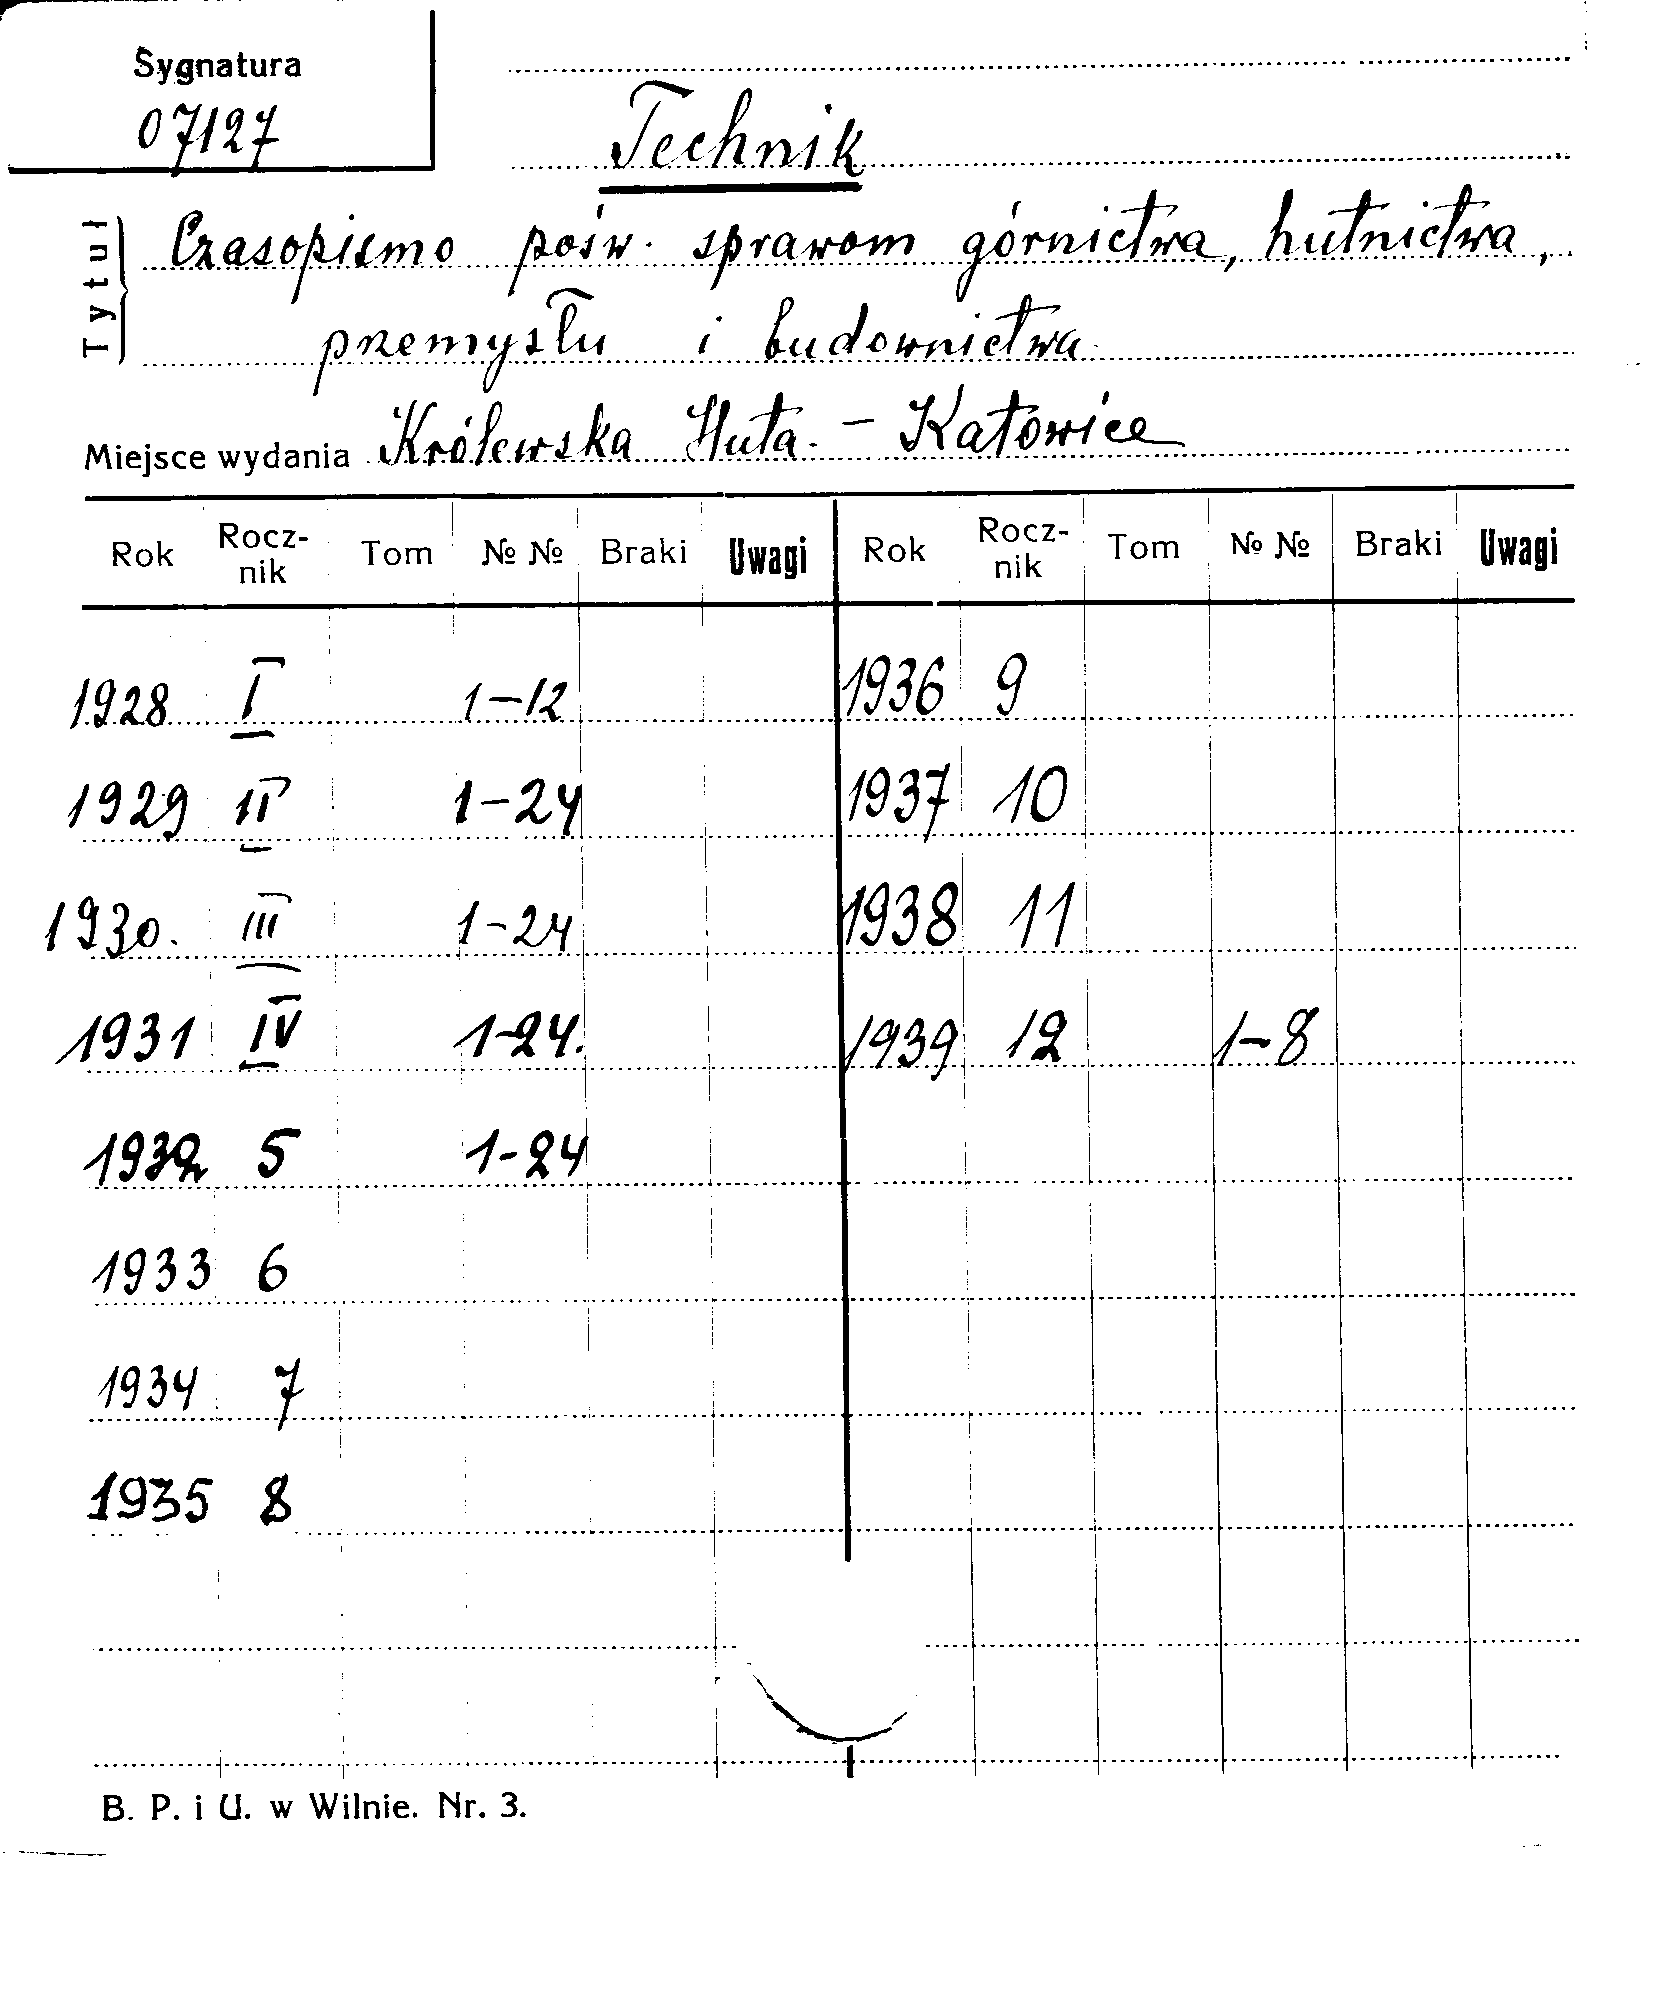 Sygnatura
07127
Technik
Tytuł
Czasopismo pośw. sprawom górnictwa, hutnictwa,
przemysłu i budownictwa.
Miejsce wydania Królewska Huta. - Katowice
Rok Rocz-nik Tom № № Braki Uwagi Rok Rocz-nik Tom № № Braki Uwagi
1928 I 1-12 1936 9
1929 II 1-24 1937 10
1930. III 1-24 1938 11
1931 IV 1-24. 1939 12 1-8
1932 5 1-24
1933 6
1934 7
1935 8
B. P. i U. w Wilnie. Nr. 3.